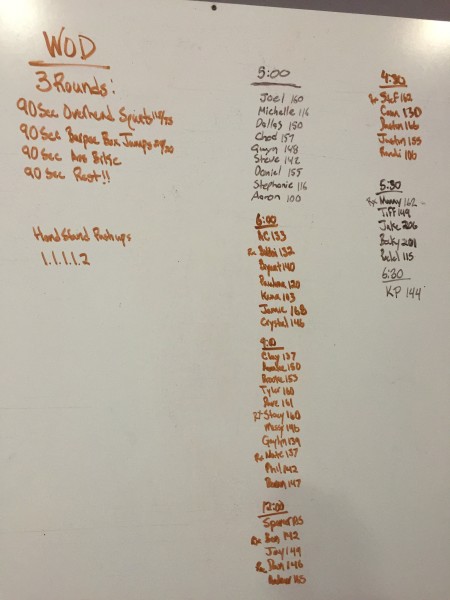 WOD
3 Rounds:
90 Sec Overhead Squats 115/75
90 Sec Burpee Box Jumps 24/20
90 Sec Bike
90 Sec Rest!!
Hand Stand Pushups
1.1.1.1.2
5:00
Joel 160
Michelle 116
Dallas 150
Chad 157
Gwyn 148
Steve 142
Daniel 155
Stephanie 116
Aaron 100
6:00
AC 133
Rx Bobbi 132
Bryant 140
120
Kena 103
Jamie 168
Crystal 146
9:00
Clay 137
150
Brooke 153
Tyler 160
Dave 161
Rx Stacy 160
Missy 146
Gaylin 139
Rx Nate 137
Phil 142
147
12:00
Spencer
Rx Ben 142
Jay 149
Rx Dan 146
165
4:30
Rx Stef 162
Cam 130
Dustin 166
Justin 155
Randi 106
5:30
Rx Manny 162
Tiff 149
Jake 206
Becky 201
115
6:30
KP 144